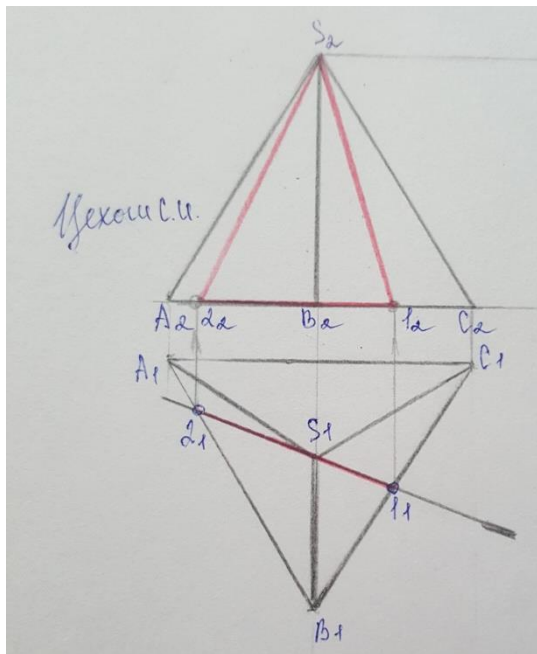 S2
Цехош С.И.
A2 22 B2 12 C2
A1 C1
21 S1
11
B1